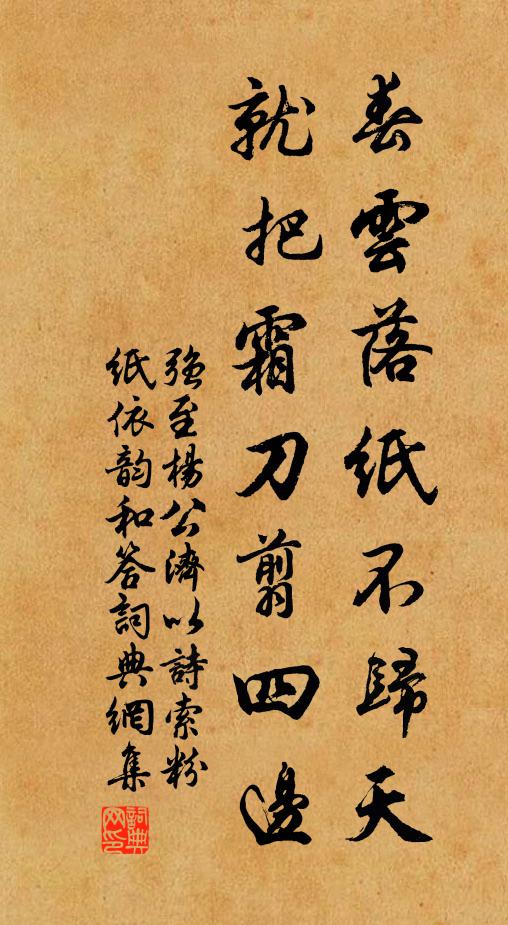 春雲落紙不歸天
就把霜刀剪四邊
強至楊公濟以詩索粉
紙依韵和答詞典網集
詞典网印